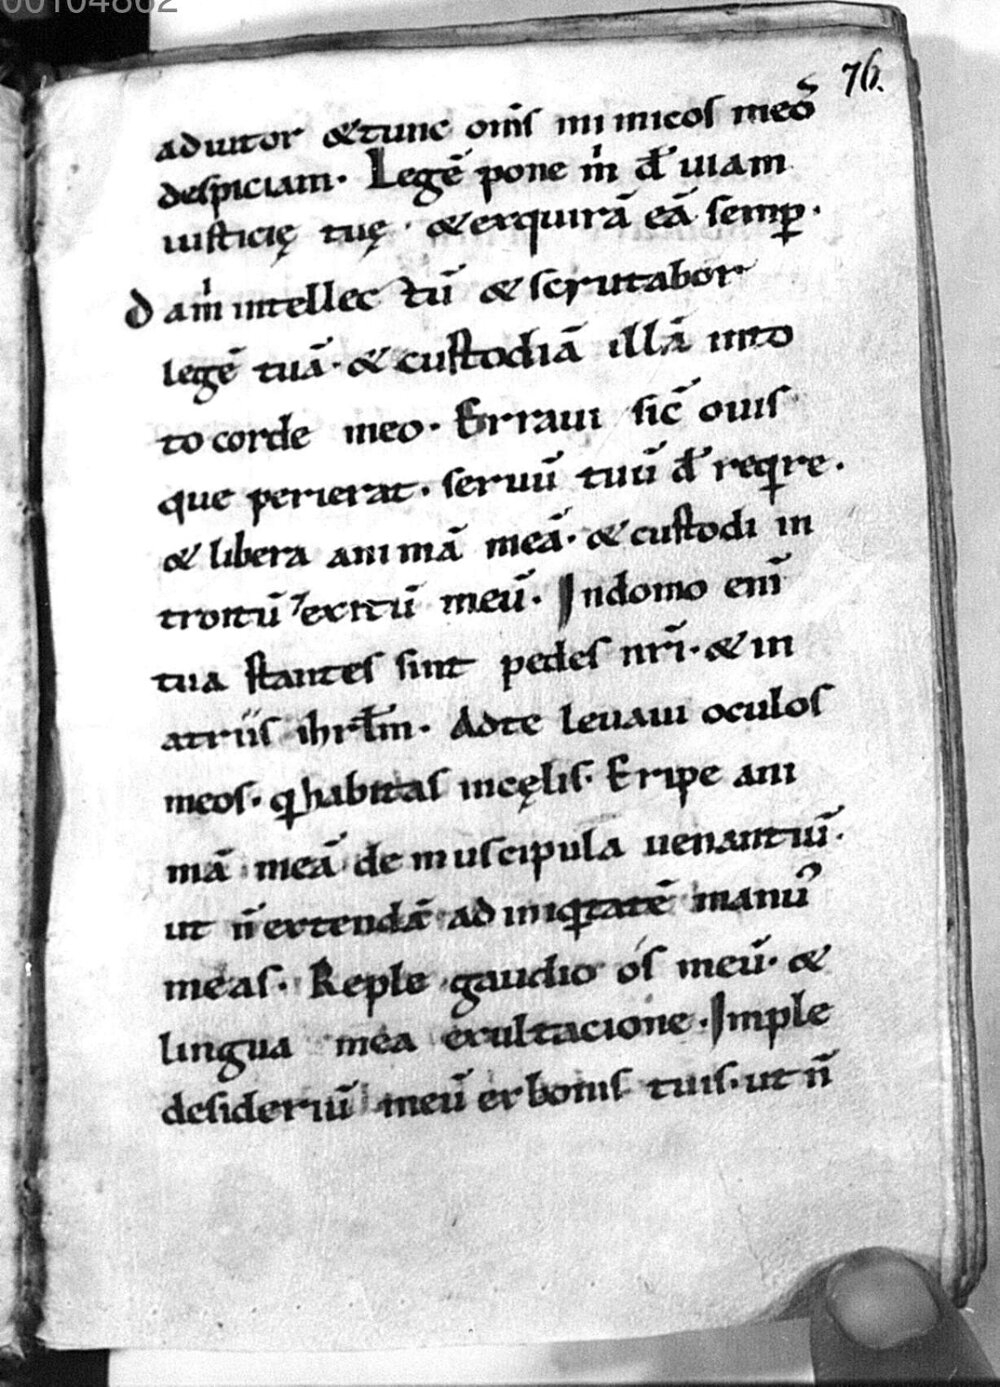 00104862
76.
adiutor &tunc om̄s inimicos meoˢ
despiciam. Legē pone m̍ dn̄e uiam
iusticię tuę. & exquirā eā semꝑ.
Dam̍ intellectū & scrutabor
legē tuā. & custodiā illā in to
to corde meo. Erraui sic̄ ouis
que perierat. seruū tuū dn̄e reqͥre.
& libera animā meā. & custodi in
troitū ⁊exitū meū. In domo eni̅
tua stantes sint pedes nr̄i. & in
atriis ihrłm. Adte leuaui oculos
meos. qͥ habitas incęlis. Eripe ani
mā meā de muscipula uenantiū.
ut n̄ extendā ad iniqͥtatē manuˢ
meas. Reple gaudio os meū. &
lingua mea exultacione. Imple
desideriū meū ex bonis tuis. ut n̄